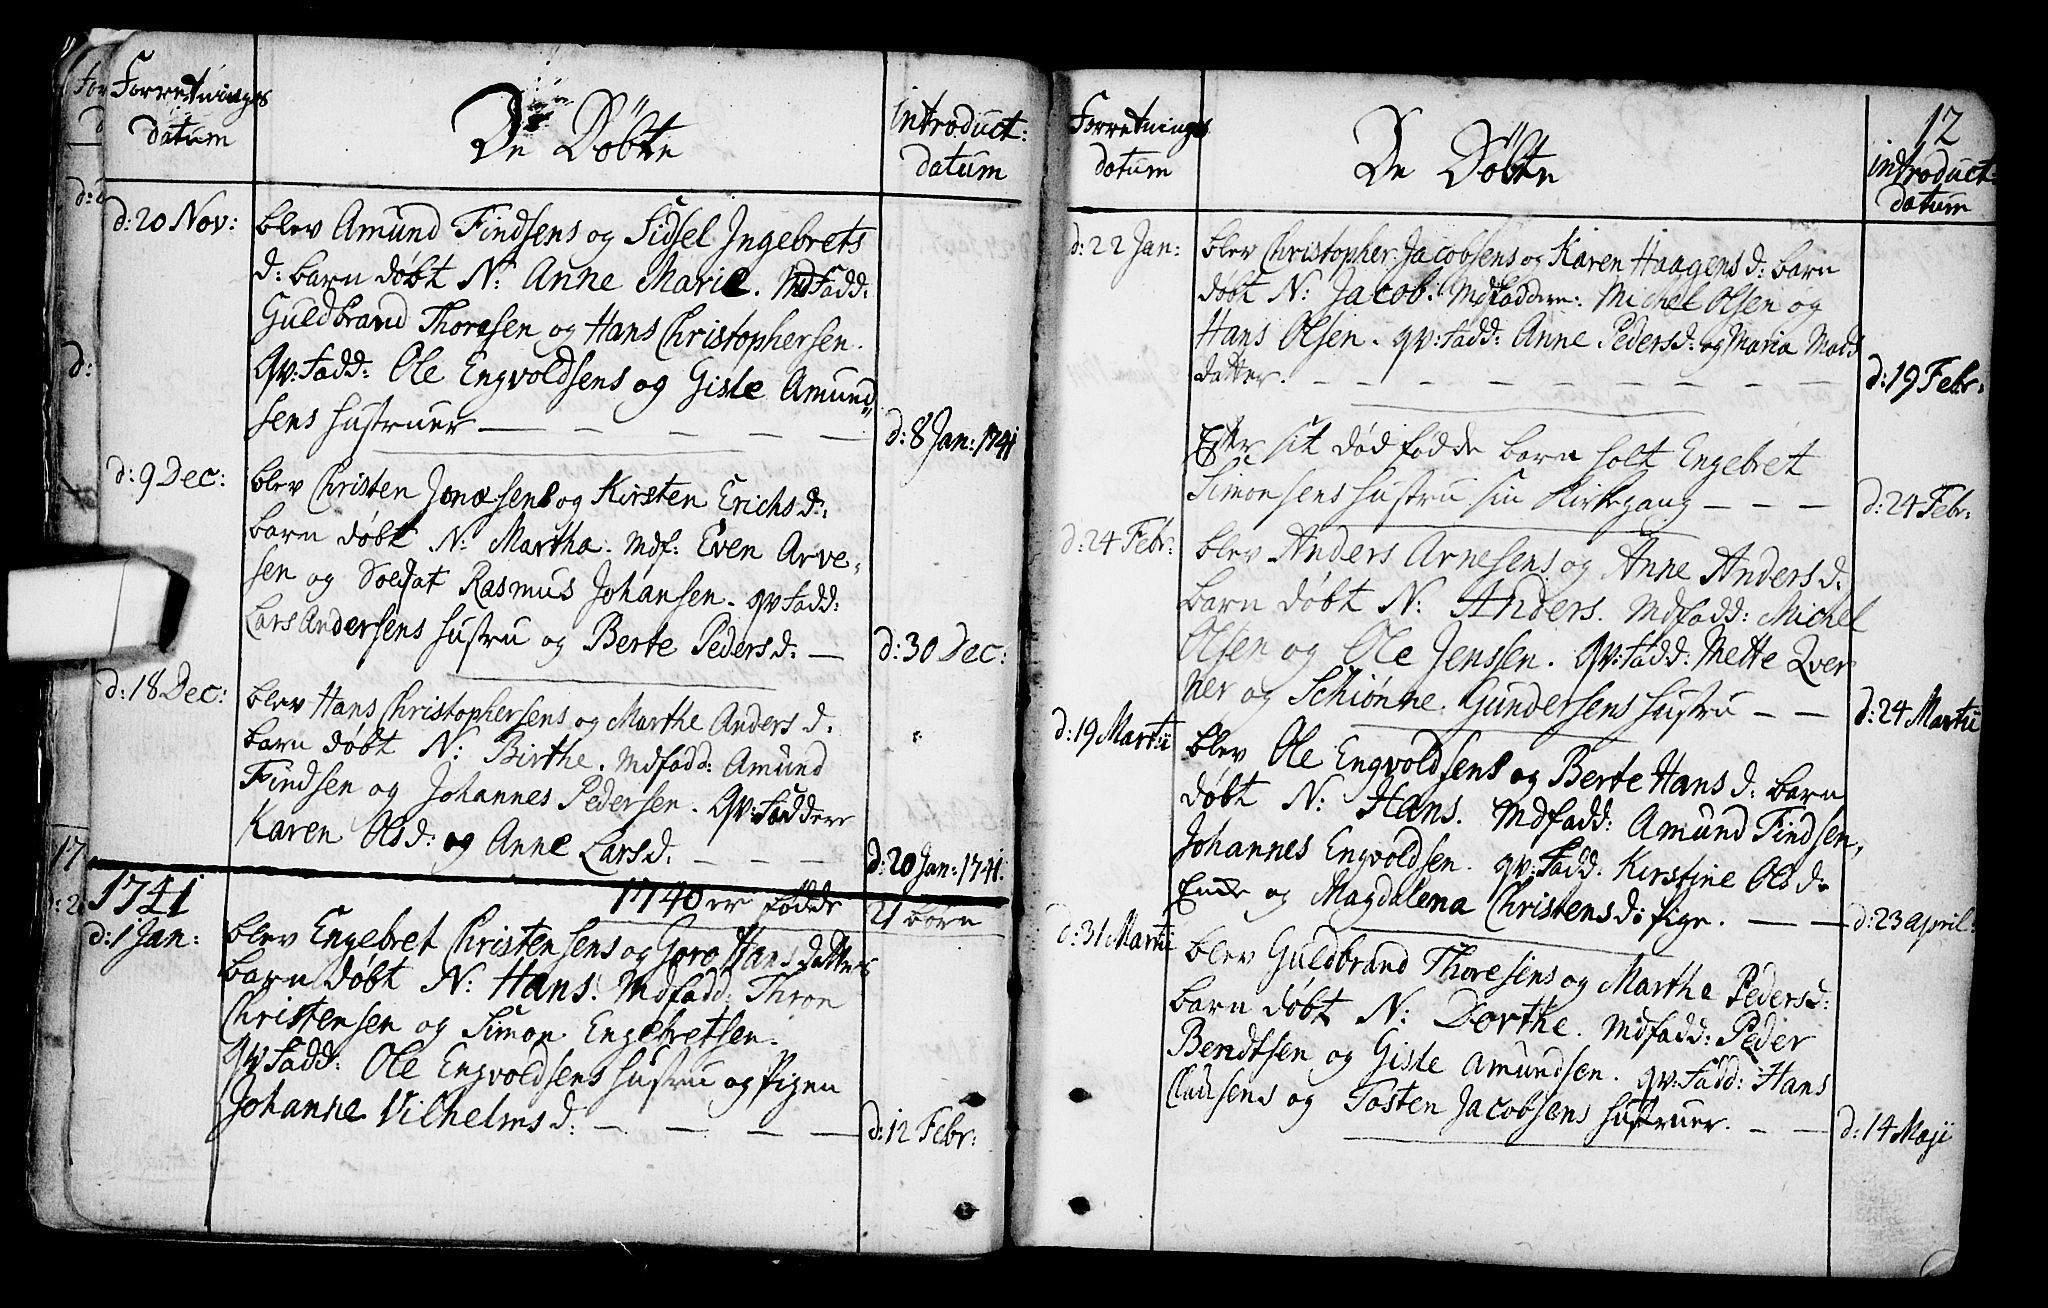 Forretnings
datum
De Döbte
introduct:
datum
d: 20 Nov:
blev Amund Findsens og Sidsel Ingebrets
d: barn döbt N: Anne Marie. Mdfadd:
Guldbrand Thoresen og Hans Christophersen.
qv: fadd: Ole Engvoldsens og Gisle Amund„
sens hustruer — — — — —
d: 8 Jan: 1741
d: 9 Dec:
blev Christen Jonasens og Kirsten Erichs d:
barn döbt N: Martha. Mdf: Even Arve„
sen og Soldat Rasmus Johansen. qv fadd:
Lars Andersens hustru og Berte Peders d. —
d: 30 Dec:
d: 18 Dec:
blev Hans Christophersens og Marthe Anders d.
barn döbt N: Birthe. Mdfadd: Amund
Findsen og Johannes Pedersen. qv: fadder
Karen Ols d: og Anne Lars d. — — —
d: 20 Jan: 1741.
1741
1740 er födde
21 börn
d: 1 Jan:
blev Engebret Christensens og Goro Hans datters
barn döbt N: Hans. Mdfadd: Thron
Christensen og Simon Engebretsen.
qv fadd: Ole Engvoldsens hustru og Pigen
Johanne Vilhelms d: — — — —
d: 12 Febr:
12
Forretnings
datum
De Döbte
introduct:
datum
d: 22 Jan:
blev Christopher Jacobsens og Karen Haagens d: barn
döbt N: Jacob. Mdfaddere: Michel Olsen og
Hans Olsen. qv: fadd: Anne Peders d: og Maria Mads
datter. — — — — — — — —
d: 19 Febr:
Efter sit död födde barn holt Engebret
Simonsens hustru sin Kirkegang — — —
d: 24 Febr:
d: 24 Febr:
blev Anders Arnesens og Anne Anders d.
barn döbt N: Anders. Mdfadd: Michel
Olsen og Ole Jenssen. qv: fadd: Mette Qver
ner og Schiönne Gundersens hustru — —
d: 24 Martii
d: 19 Martii
blev Ole Engvoldsens og Berte Hans d: barn
döbt N: Hans. Mdfadd: Amund Findsen,
Johannes Engvoldsen. qv: fadd. Kirstine Ols d:
og Magdalena Christens d: pige. — —
d: 23 april:
d: 31 Martii
blev Guldbrand Thoresens og Marthe Peders d:
barn döbt N: Dorthe. Mdfadd: Peder
Bendtsen og Gisle Amundsen. qv: fadd: Hans
Clausens og Tosten Jacobsens hustruer. — —
d: 14 Maji